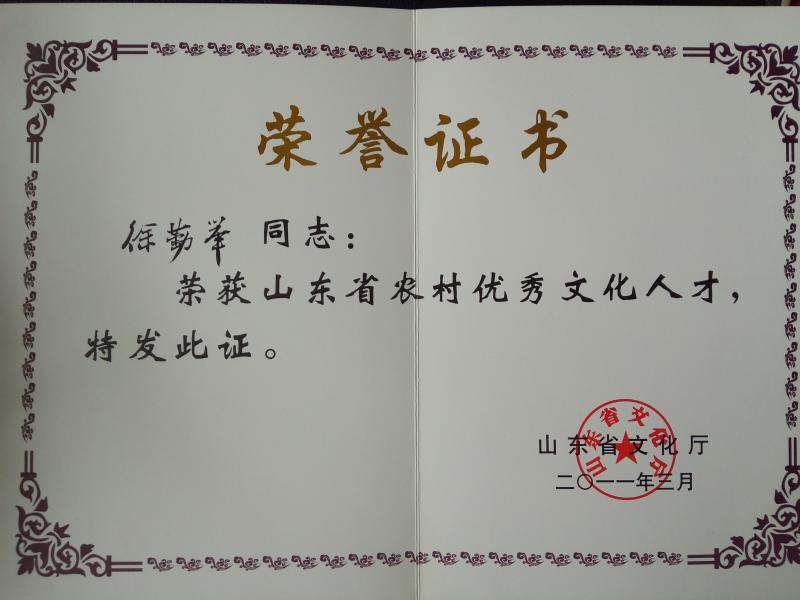 荣誉证书
徐勤举 同志：
荣获山东省农村优秀文化人才，
特发此证。
山东省文化厅
二〇一一年三月
山东省文化厅